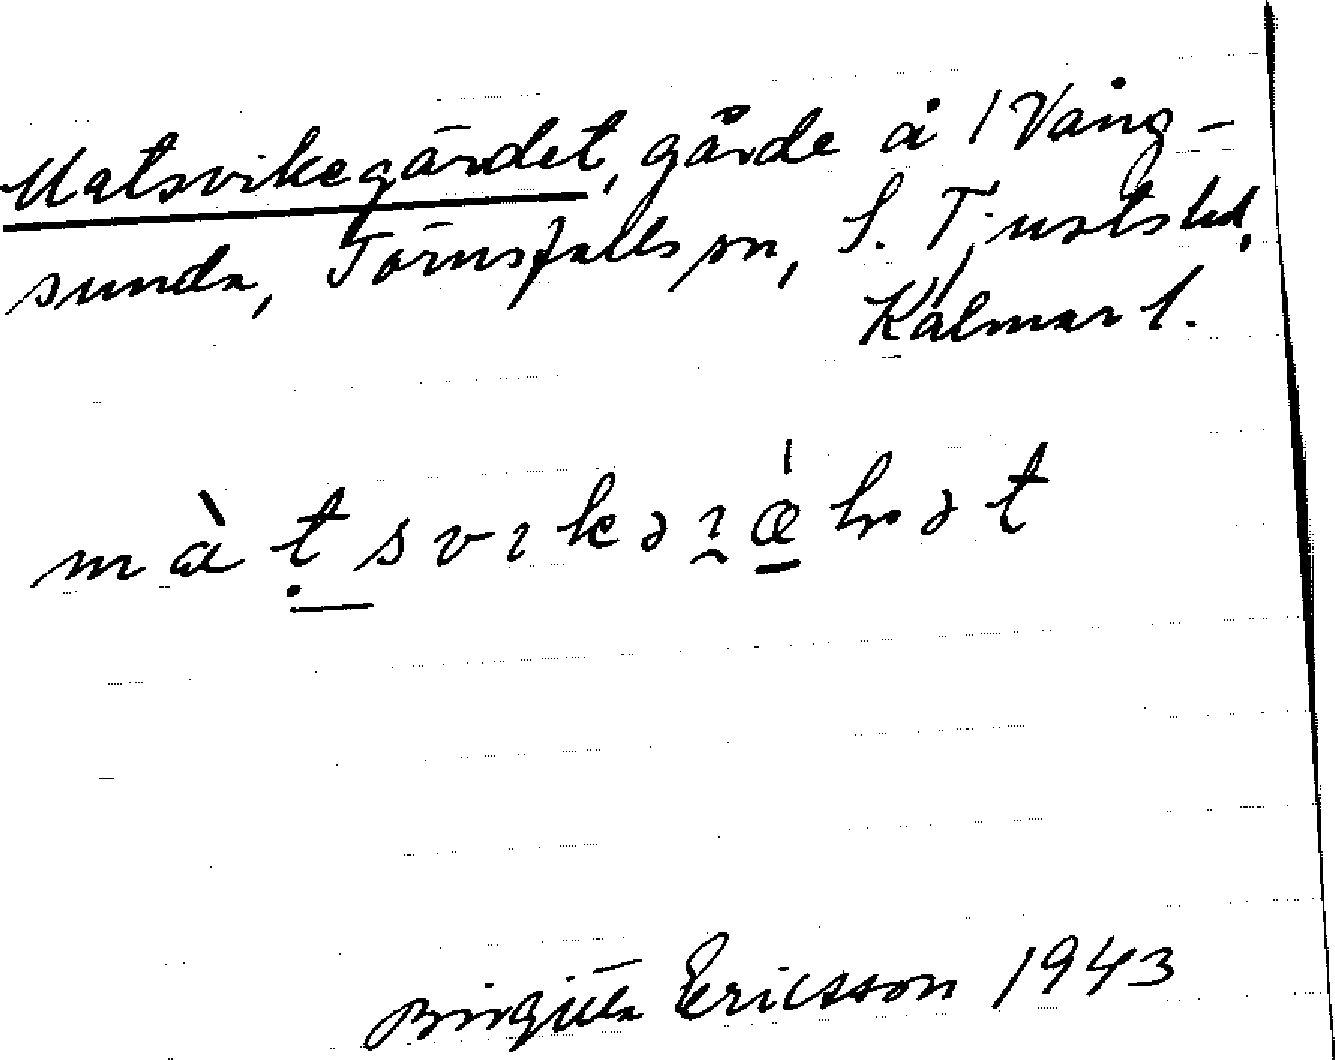 Matsvikegärdet, gärde å 1 Vång-
sunda, Törnsfalls sn, S. Tjusts hd,
Kalmar l.
Birgitta Ericsson 1943